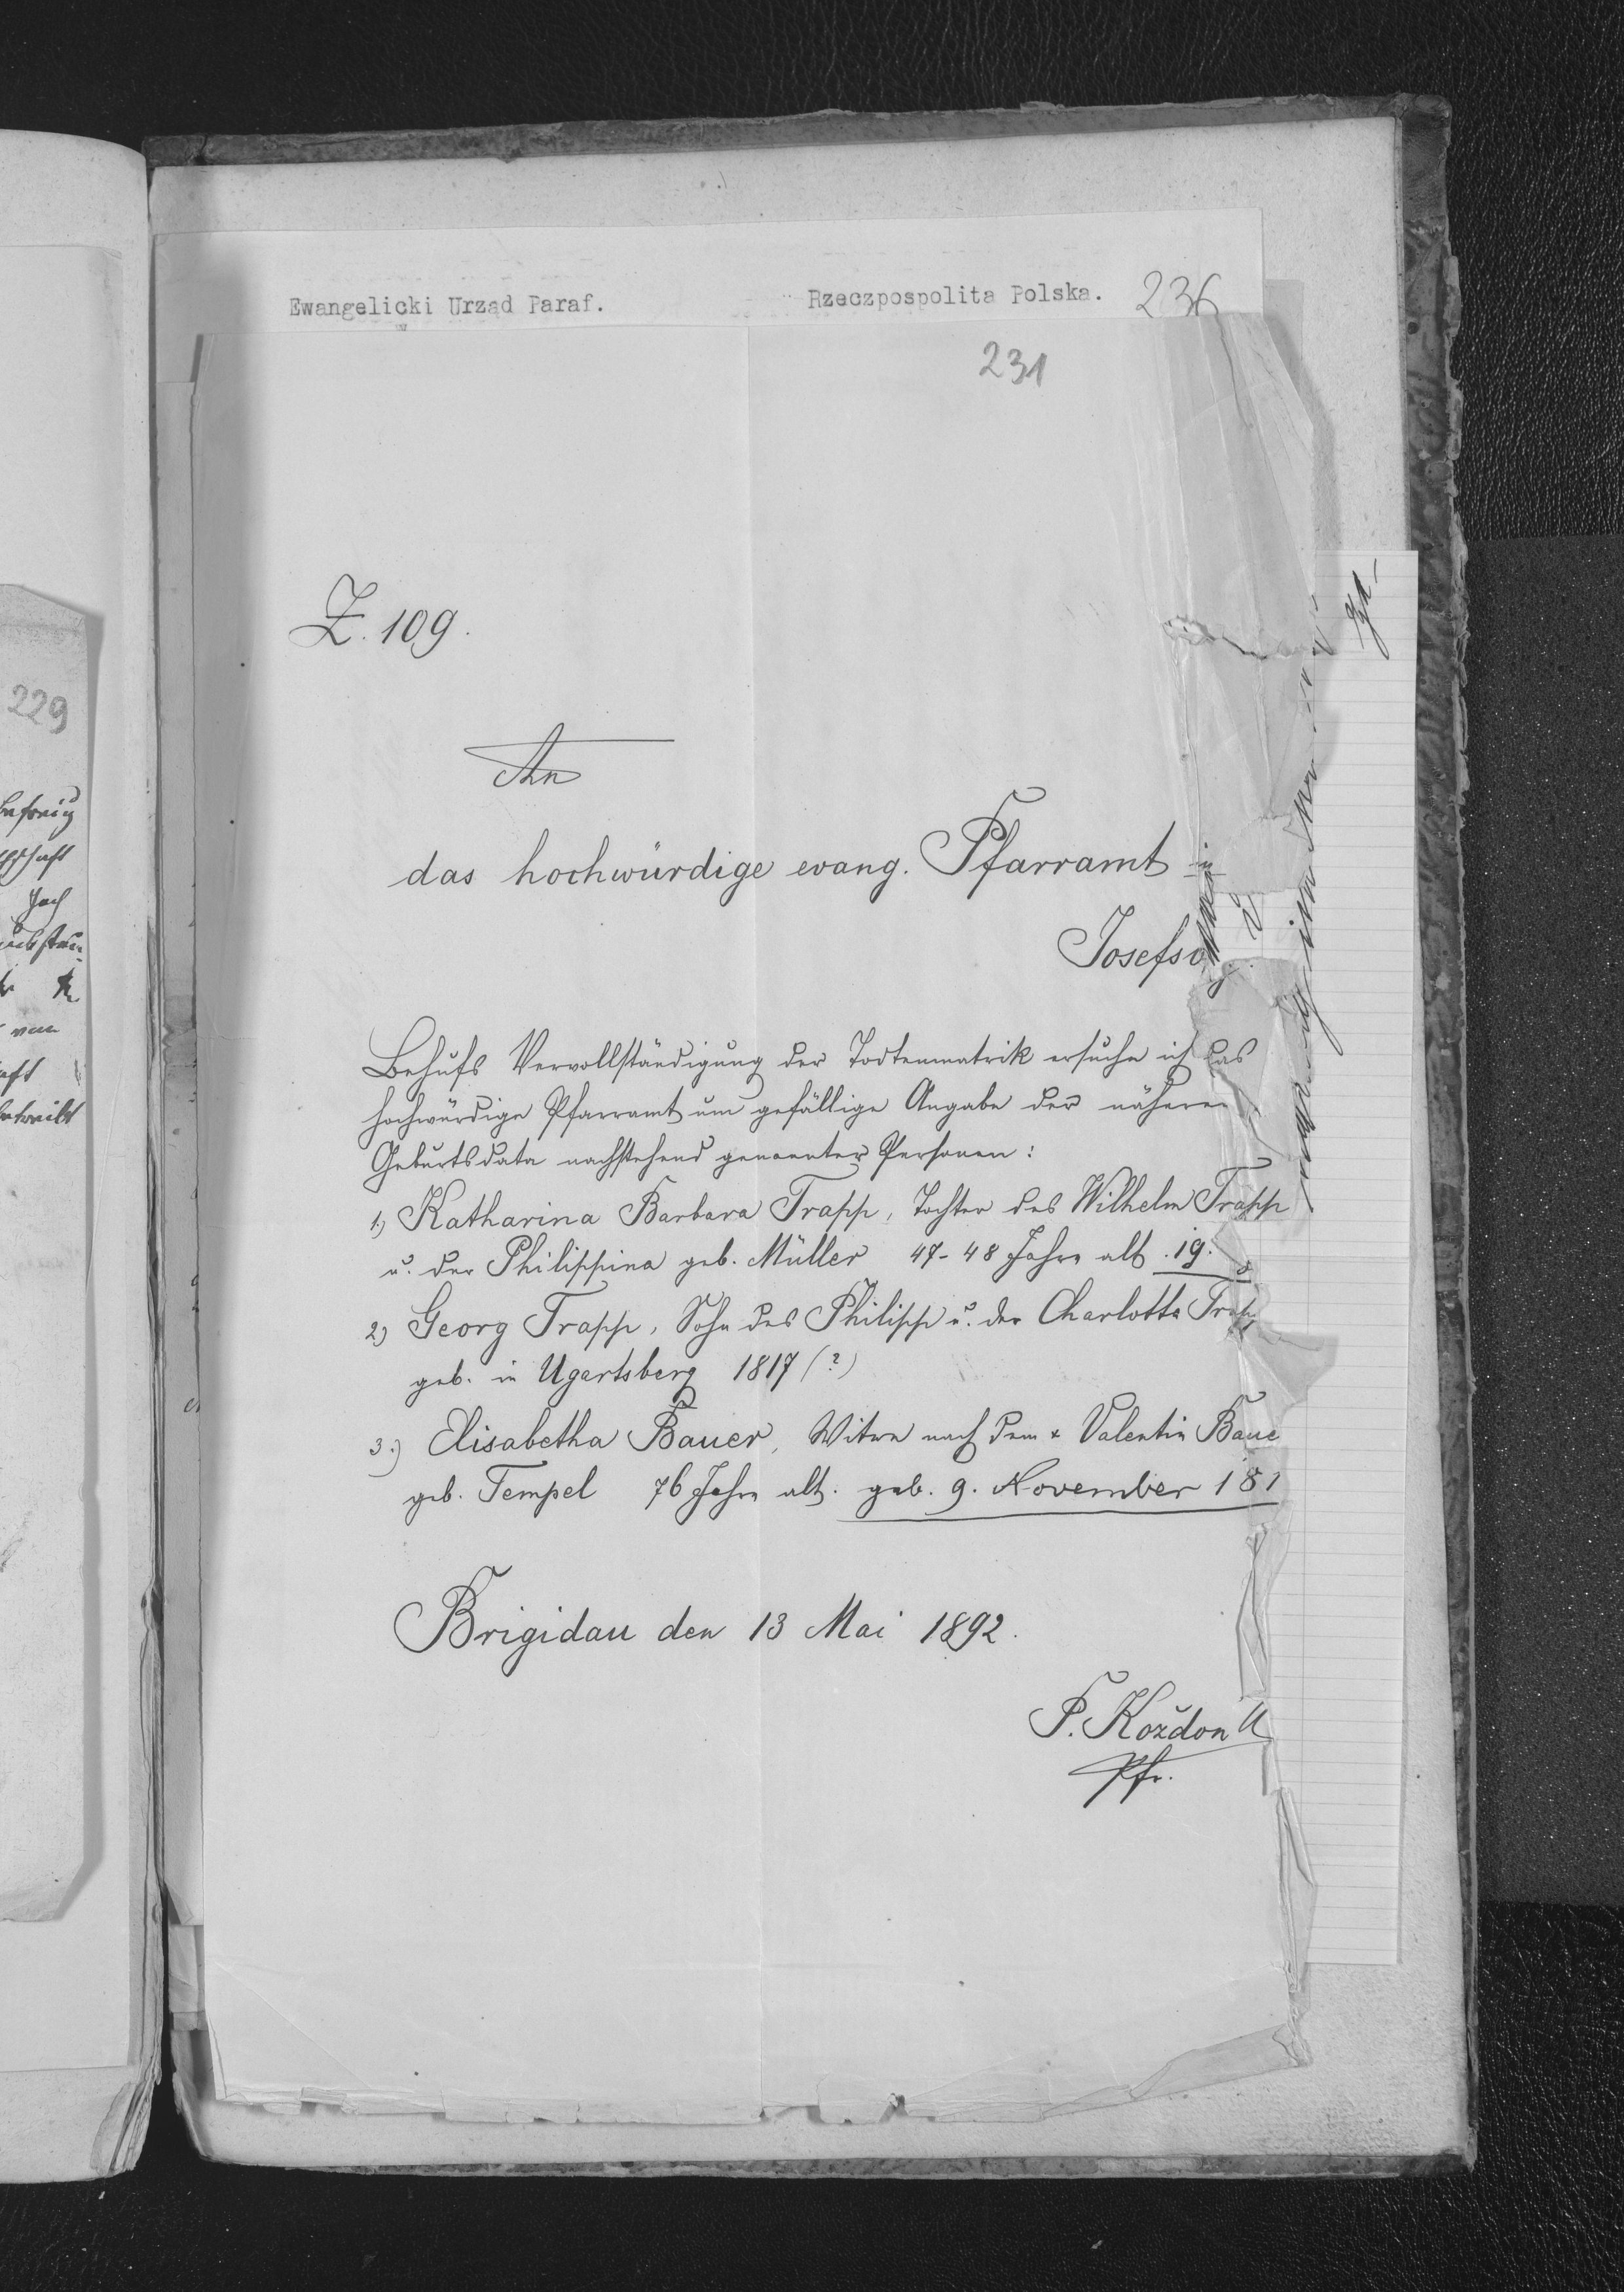 Ewangelicki Urząd Paraf.
Rzeczpospolita Polska.
236
w
231
229
Z. 109.
An
das hochwürdige evang. Pfarramt in
Josefs
Behufs Vervollständigung der Todtenmatrik ersuche ich das
hochwürdige Pfarramt um gefällige Angabe der näheren
Geburtsdata nachstehend genannter Personen:
1.) Katharina Barbara Trapp, Tochter des Wilhelm Trapp
u. der Philippina geb. Müller 47-48 Jahre alt. 19.
2) Georg Trapp, Sohn des Philipp u. der Charlotte Trapp
geb. in Ugartsberg 1817 (?)
3.) Elisabetha Bauer, Witwe nach dem + Valentin Baue
geb. Tempel 76 Jahre alt. geb. 9. November 181
Brigidau den 13 Mai 1892.
P. Koždon
Pfr.